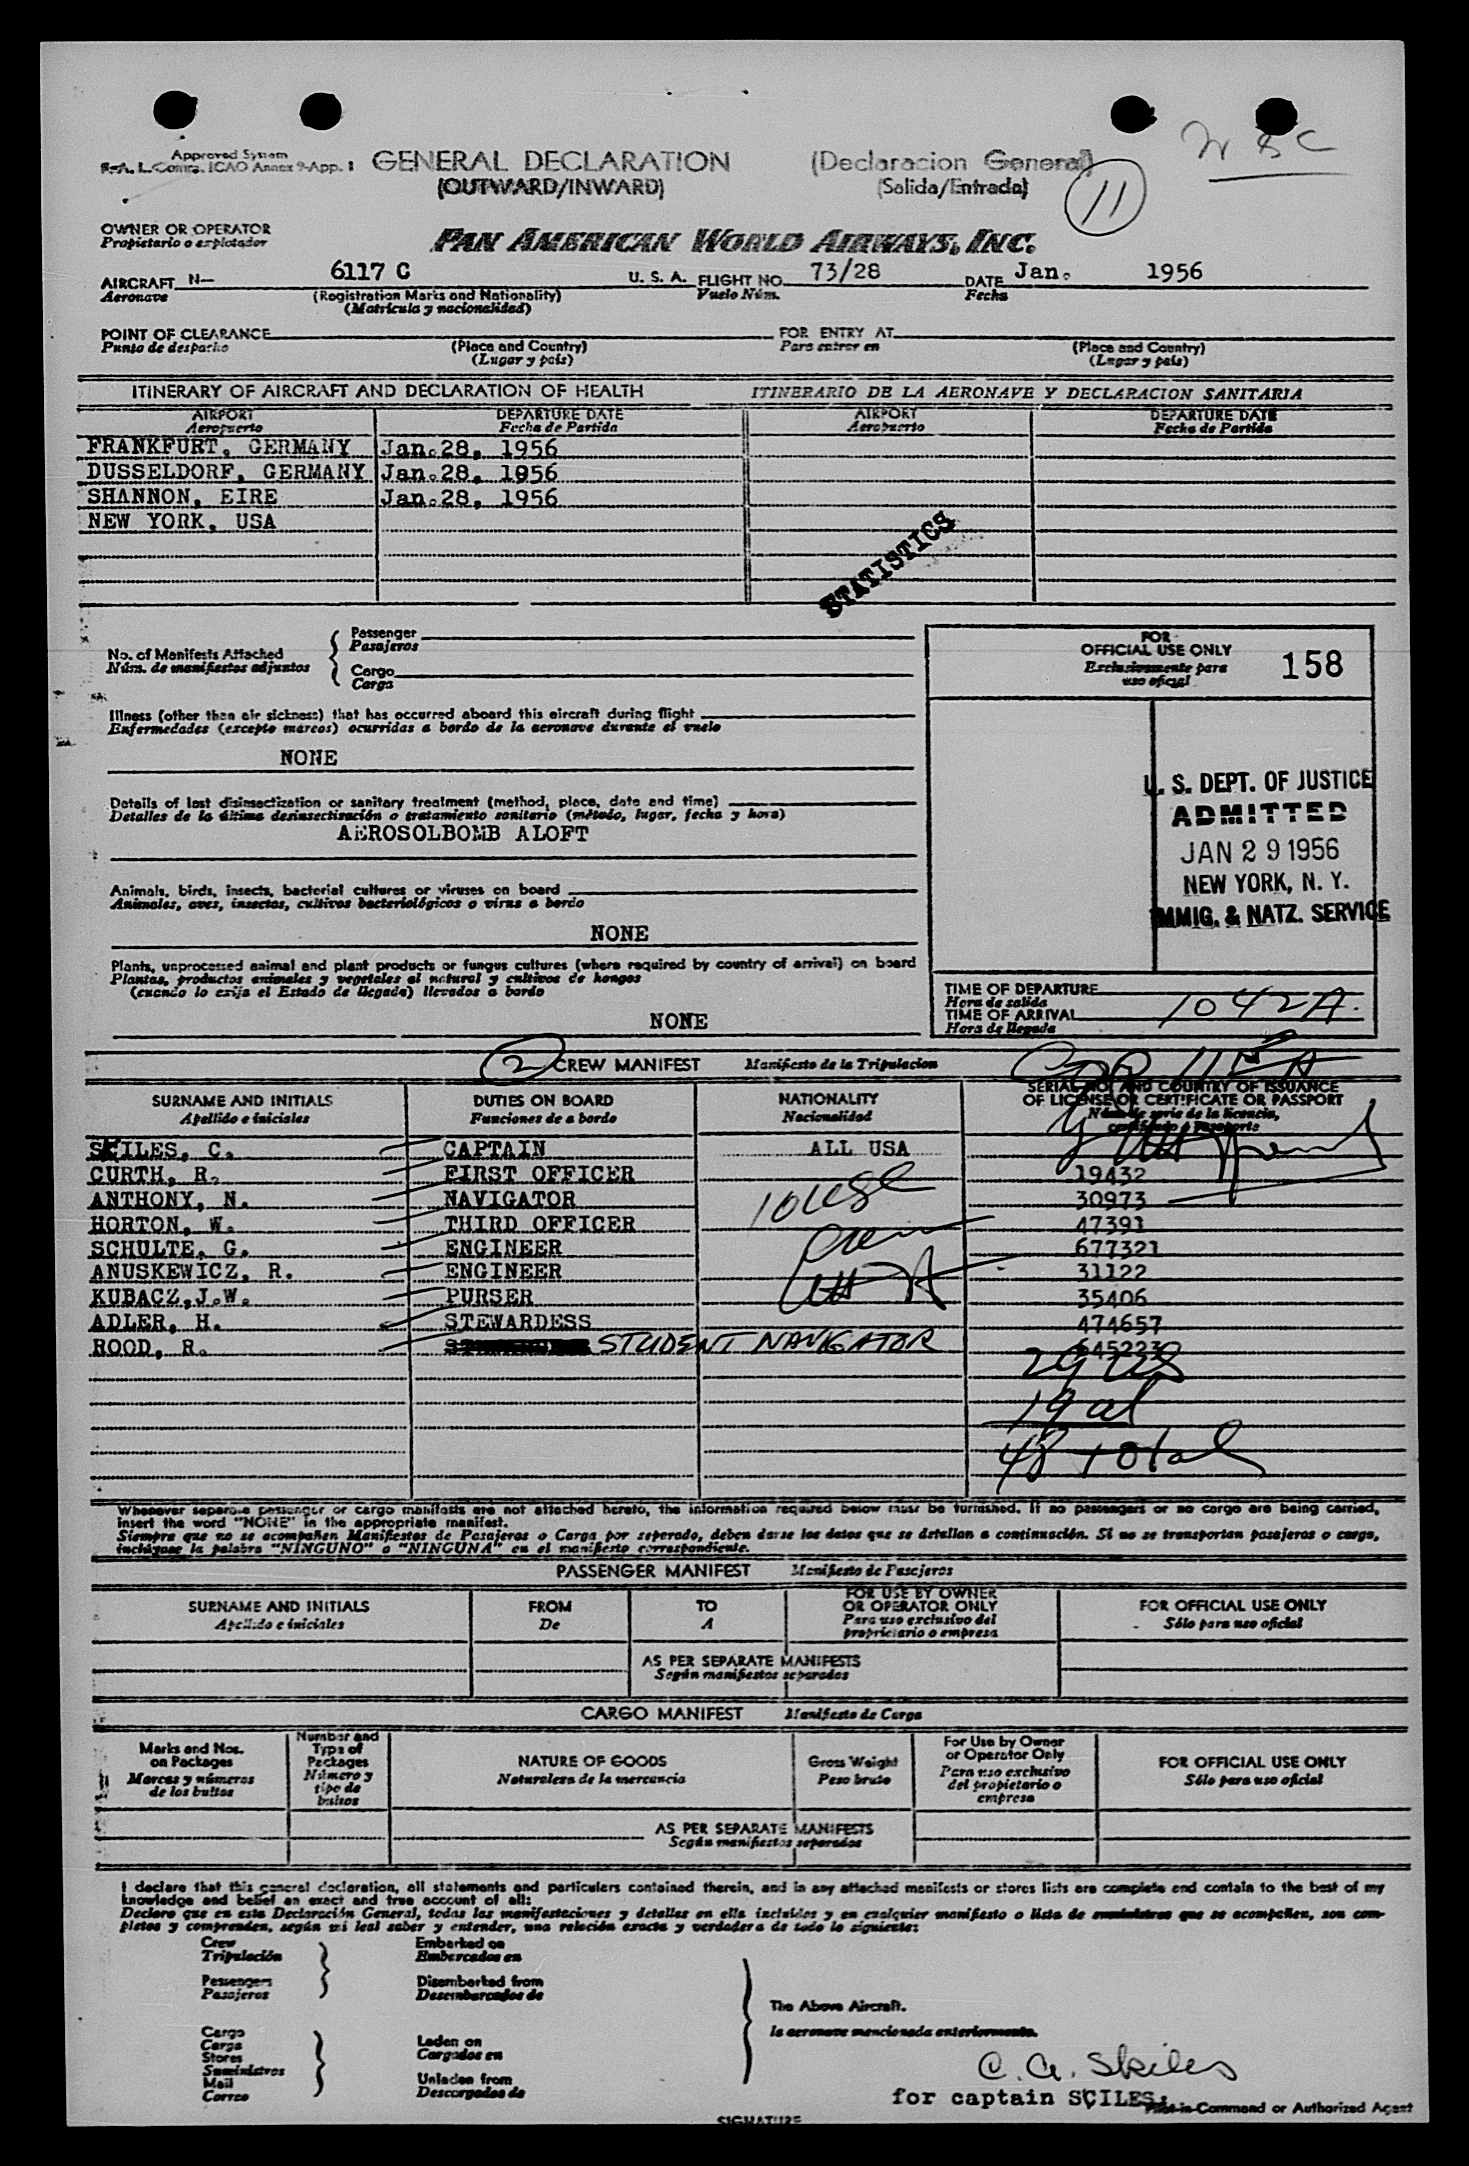 Approved System
GENERAL DECLARATION (Declaracion General)
(OUTWARD/INWARD) (Salida/Entrada)
11
OWNER OR OPERATOR
Propietario o explotador
PAN AMERICAN WORLD AIRWAYS, INC.
AIRCRAFT N— 6117 C U. S. A. FLIGHT NO. 73/28 DATE Jan. 1956
Aeronave (Registration Marks and Nationality) Vuelo Núm. Fecha
(Matricula y nacionalidad)
POINT OF CLEARANCE FOR ENTRY AT
Punto de despacho (Place and Country) Para entrar en (Place and Country)
(Lugar y país) (Lugar y país)
ITINERARY OF AIRCRAFT AND DECLARATION OF HEALTH ITINERARIO DE LA AERONAVE Y DECLARACION SANITARIA
AIRPORT DEPARTURE DATE AIRPORT DEPARTURE DATE
Aeropuerto Fecha de Partida Aeropuerto Fecha de Partida
FRANKFURT, GERMANY Jan.28, 1956
DUSSELDORF, GERMANY Jan.28, 1956
SHANNON, EIRE Jan.28, 1956
NEW YORK, USA
STATISTICS
No. of Manifests Attached
Núm. de manifiestos adjuntos
Passenger
Pasajeros
Cargo
Carga
FOR
OFFICIAL USE ONLY
Exclusivamente para
uso oficial
158
Illness (other than air sickness) that has occurred aboard this aircraft during flight
Enfermedades (excepto mareos) ocurridas a bordo de la aeronave durante el vuelo
NONE
Details of last disinsectization or sanitary treatment (method, place, date and time)
Detalles de la última desinsectización o tratamiento sanitario (método, lugar, fecha y hora)
AEROSOLBOMB ALOFT
Animals, birds, insects, bacterial cultures or viruses on board
Animales, aves, insectos, cultivos bacteriológicos o virus a bordo
NONE
Plants, unprocessed animal and plant products or fungus cultures (where required by country of arrival) on board
Plantas, productos animales y vegetales al natural y cultivos de hongos
(cuando lo exija el Estado de llegada) llevados a bordo
NONE
U. S. DEPT. OF JUSTICE
ADMITTED
JAN 29 1956
NEW YORK, N. Y.
IMMIG. & NATZ. SERVICE
TIME OF DEPARTURE
Hora de salida
TIME OF ARRIVAL 1042A.
Hora de llegada
2 CREW MANIFEST Manifiesto de la Tripulacion
SURNAME AND INITIALS DUTIES ON BOARD NATIONALITY SERIAL NO. AND COUNTRY OF ISSUANCE
OF LICENSE OR CERTIFICATE OR PASSPORT
Apellido e iniciales Funciones de a bordo Nacionalidad Número de serie de la licencia,
certificado o pasaporte
SKILES, C. CAPTAIN ALL USA
CURTH, R. FIRST OFFICER 19432
ANTHONY, N. NAVIGATOR 30973
HORTON, W. THIRD OFFICER 47391
SCHULTE, G. ENGINEER 677321
ANUSKEWICZ, R. ENGINEER 31122
KUBACZ,J.W. PURSER 35406
ADLER, H. STEWARDESS 474657
ROOD, R. STUDENT NAVIGATOR
29 US
19 al
48 total
Whenever separate passenger or cargo manifests are not attached hereto, the information required below must be furnished. If no passengers or no cargo are being carried,
insert the word "NONE" in the appropriate manifest.
Siempre que no se acompañen Manifiestos de Pasajeros o Carga por separado, deben darse los datos que se detallan a continuación. Si no se transportan pasajeros o carga,
inclúyase la palabra "NINGUNO" o "NINGUNA" en el manifiesto correspondiente.
PASSENGER MANIFEST Manifiesto de Pasajeros
SURNAME AND INITIALS FROM TO FOR USE BY OWNER
OR OPERATOR ONLY FOR OFFICIAL USE ONLY
Apellido e iniciales De A Para uso exclusivo del
propietario o empresa Sólo para uso oficial
AS PER SEPARATE MANIFESTS
Según manifiestos separados
CARGO MANIFEST Manifiesto de Carga
Marks and Nos.
on Packages
Marcas y números
de los bultos
Number and
Type of
Packages
Número y
tipo de
bultos
NATURE OF GOODS
Naturaleza de la mercancia
Gross Weight
Peso bruto
For Use by Owner
or Operator Only
Para uso exclusivo
del propietario o
empresa
FOR OFFICIAL USE ONLY
Sólo para uso oficial
AS PER SEPARATE MANIFESTS
Según manifiestos separados
I declare that this general declaration, all statements and particulars contained therein, and in any attached manifests or stores lists are complete and contain to the best of my
knowledge and belief an exact and true account of all:
Declaro que en esta Declaración General, todas las manifestaciones y detalles en ella incluidos y en cualquier manifiesto o lista de suministros que se acompañen, son com-
pletos y comprenden, según mi leal saber y entender, una relación exacta y verdadera de todo lo siguiente:
Crew
Tripulación
Passengers
Pasajeros
Embarked on
Embarcados en
Disembarked from
Desembarcados de
Cargo
Carga
Stores
Suministros
Mail
Correo
Laden on
Cargados en
Unladen from
Descargados de
The Above Aircraft.
la aeronave mencionada anteriormente.
C. A. Skiles
for captain SCILES.
Pilot-in-Command or Authorized Agent
SIGNATURE